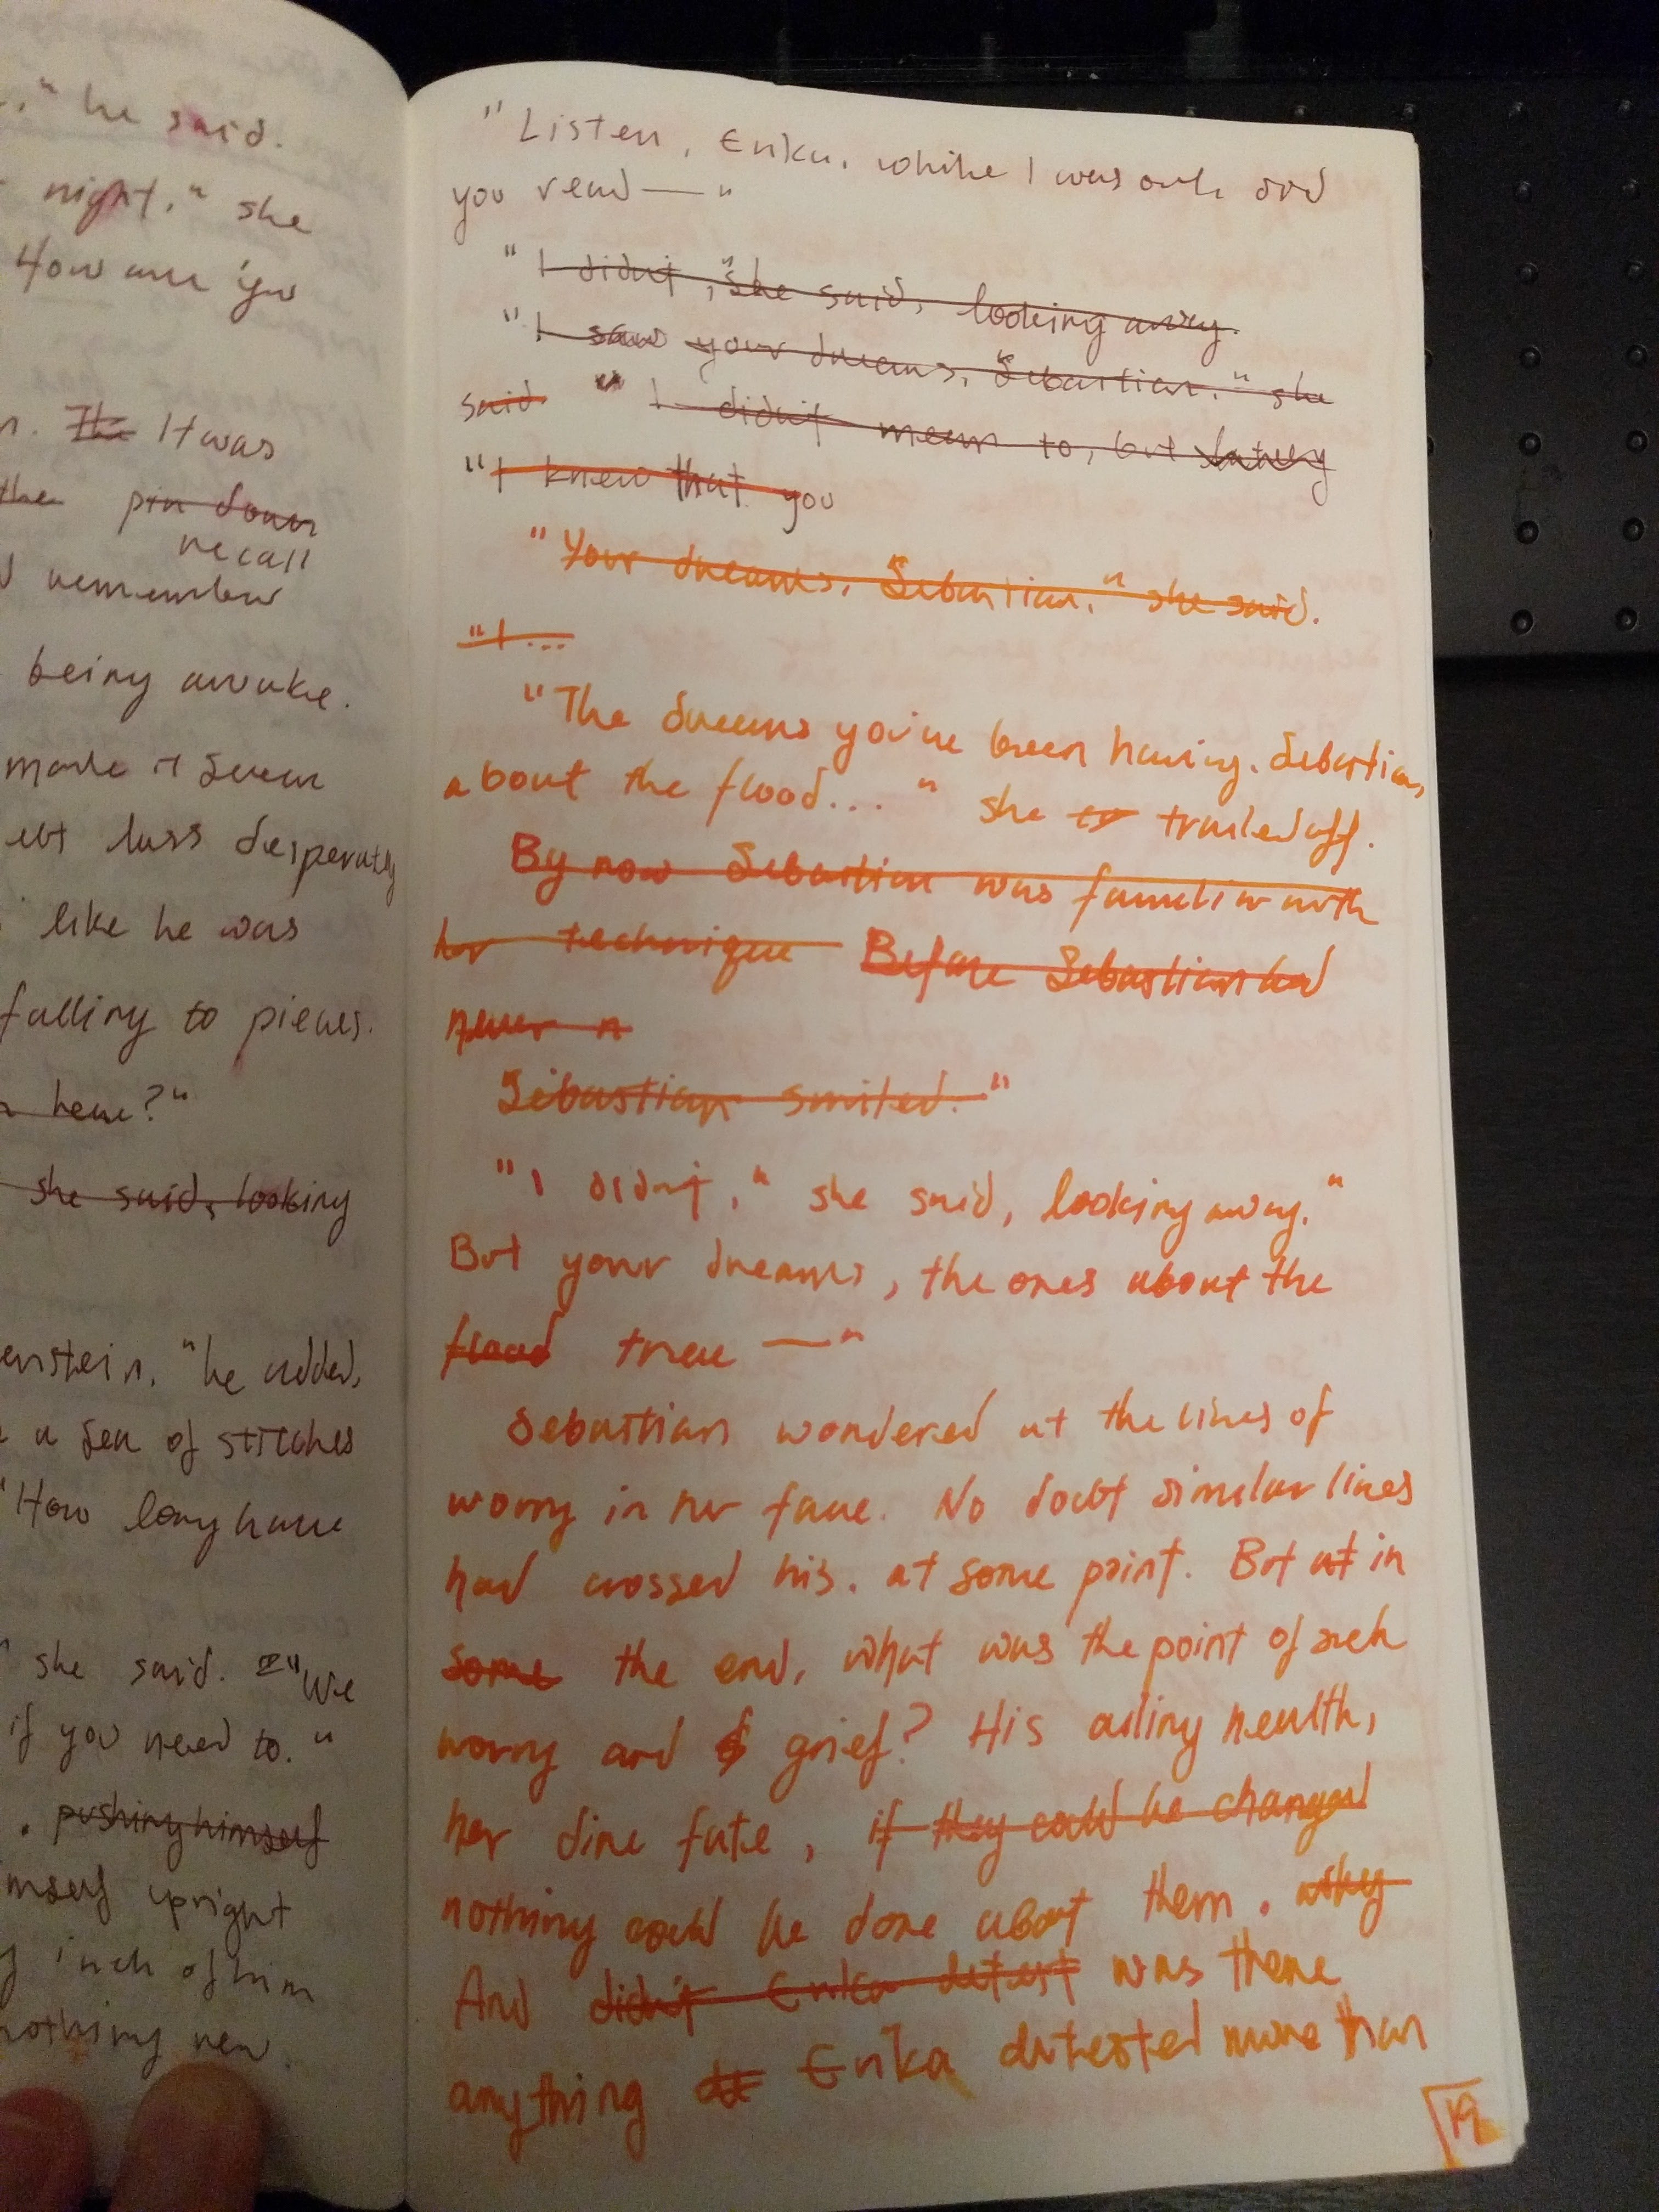 ," he said.
night," she
How are you
n. The It was
the pin down
recall
remember
being awake.
made it seem
less desperately
like he was
falling to pieces.
here?"
she said, looking
enstein," he added,
a sea of stitches
"How long have
she said. "We
if you need to."
. pushing himself
mself upright
inch of him
nothing new.
"Listen, Erika, while I was out did
you read—"
"I didn't," she said, looking away.
"I saw your dreams, Sebastian." she
said. "I didn't mean to, but lately
"I knew that you
"Your dreams, Sebastian," she said.
"I...
"The dreams you've been having, Sebastian,
about the flood..." she tr trailed off.
By now Sebastian was familiar with
her technique Before Sebastian had
never n
Sebastian smiled."
"I didn't," she said, looking away."
But your dreams, the ones about the
flood tree —"
Sebastian wondered at the lines of
worry in her face. No doubt similar lines
had crossed his, at some point. But at in
some the end, what was the point of such
worry and grief? His ailing health,
her dire fate, if they could be changed
nothing could be done about them. why
And didn't Erika detest was there
anything Erika detested more than
19